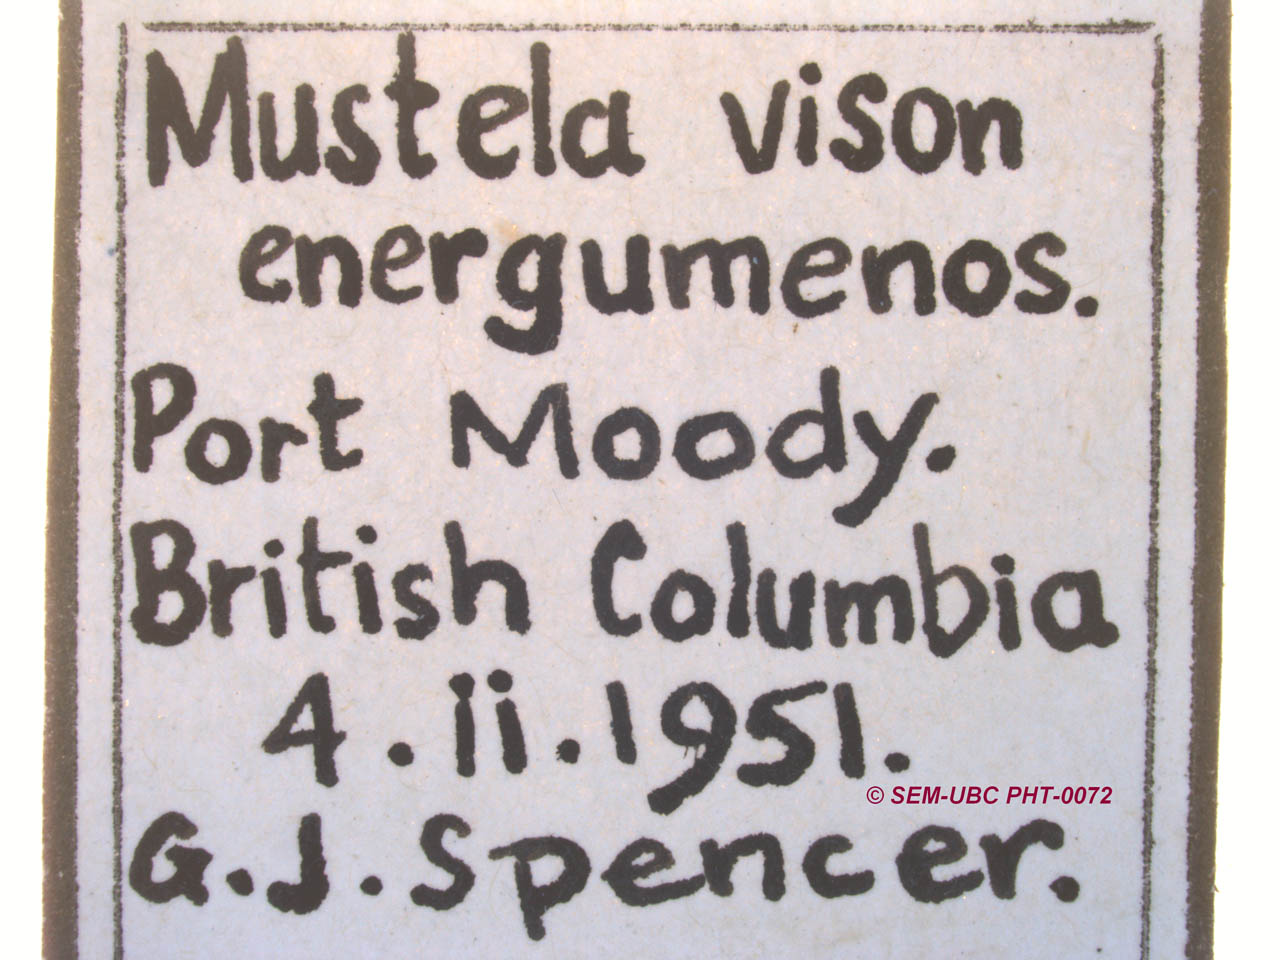 Mustela vison
energumenos.
Port Moody.
British Columbia
4.ii.1951.
© SEM-UBC PHT-0072
G.J.Spencer.